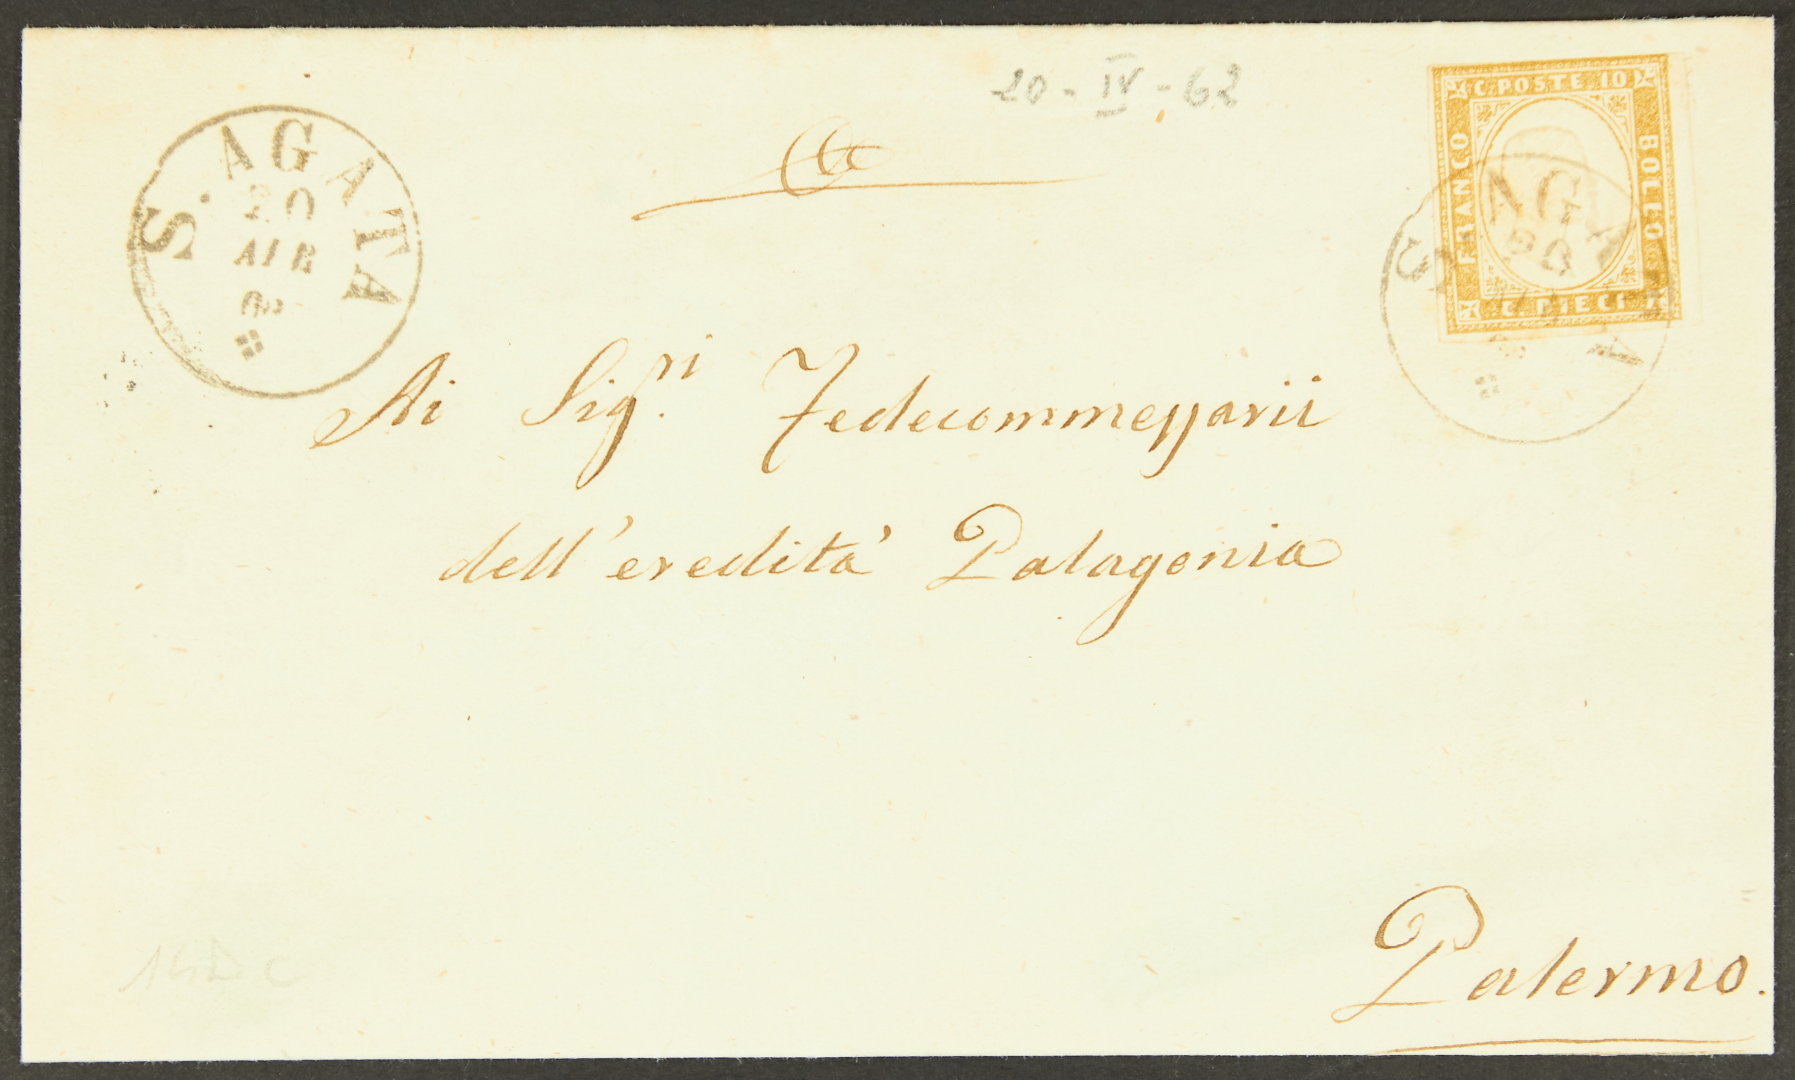 20 - IV - 62
S. AGATA
20
C. POSTE 10
FRANCO
BOLLO
C. DIECI
AGATA
20
Ai Sig.ri Fedecommessarii
dell'eredità Palagonia
Palermo.